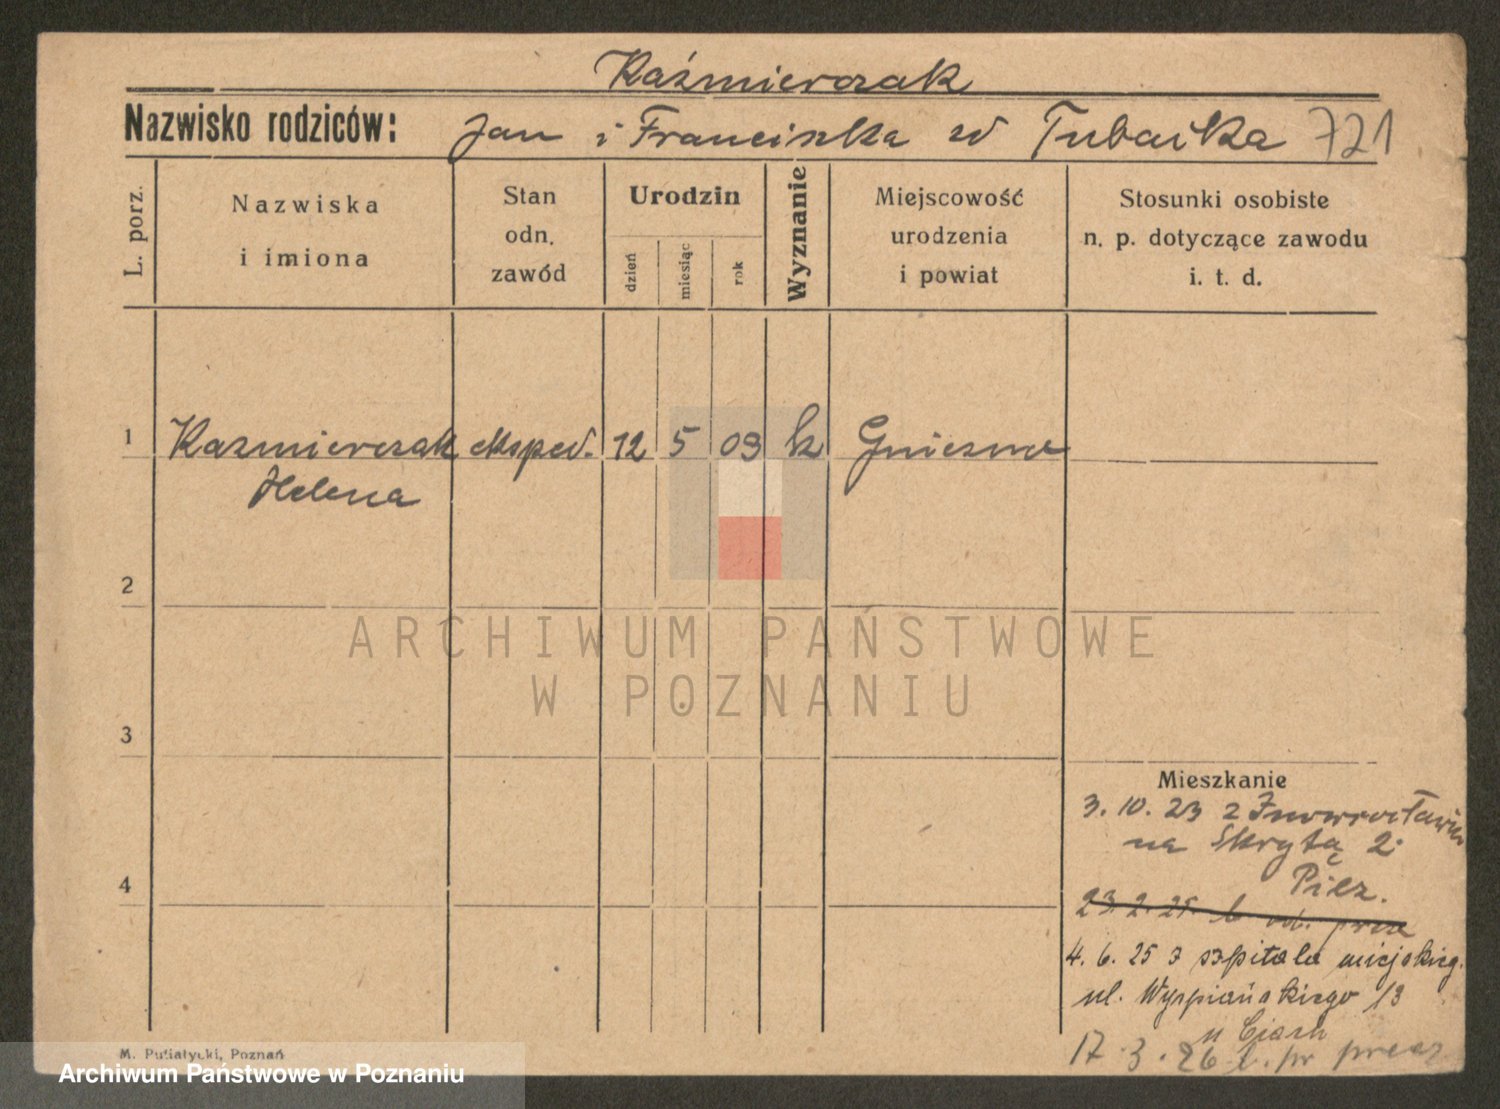 Kaźmierczak
Nazwisko rodziców: Jan i Franciszka zd Tubacka 721
L. porz.
Nazwiska
i imiona
Stan
odn.
zawód
Urodzin
dzień
miesiąc
rok
Wyznanie
Miejscowość
urodzenia
i powiat
Stosunki osobiste
n. p. dotyczące zawodu
i. t. d.
1 Kazmierczak eksped. 12 5 03 k Gniezno
Helena
2
ARCHIWUM PAŃSTWOWE
W POZNANIU
3
Mieszkanie
3. 10. 23 z Inowrocławia
na Skrytą 2.
4
Pilz.
23. 2. 25. od.
4. 6. 25 z szpitala miejskieg.
ul. Wyspiańskiego 13
u
17. 3. 26
M. Putiatycki, Poznań
Archiwum Państwowe w Poznaniu